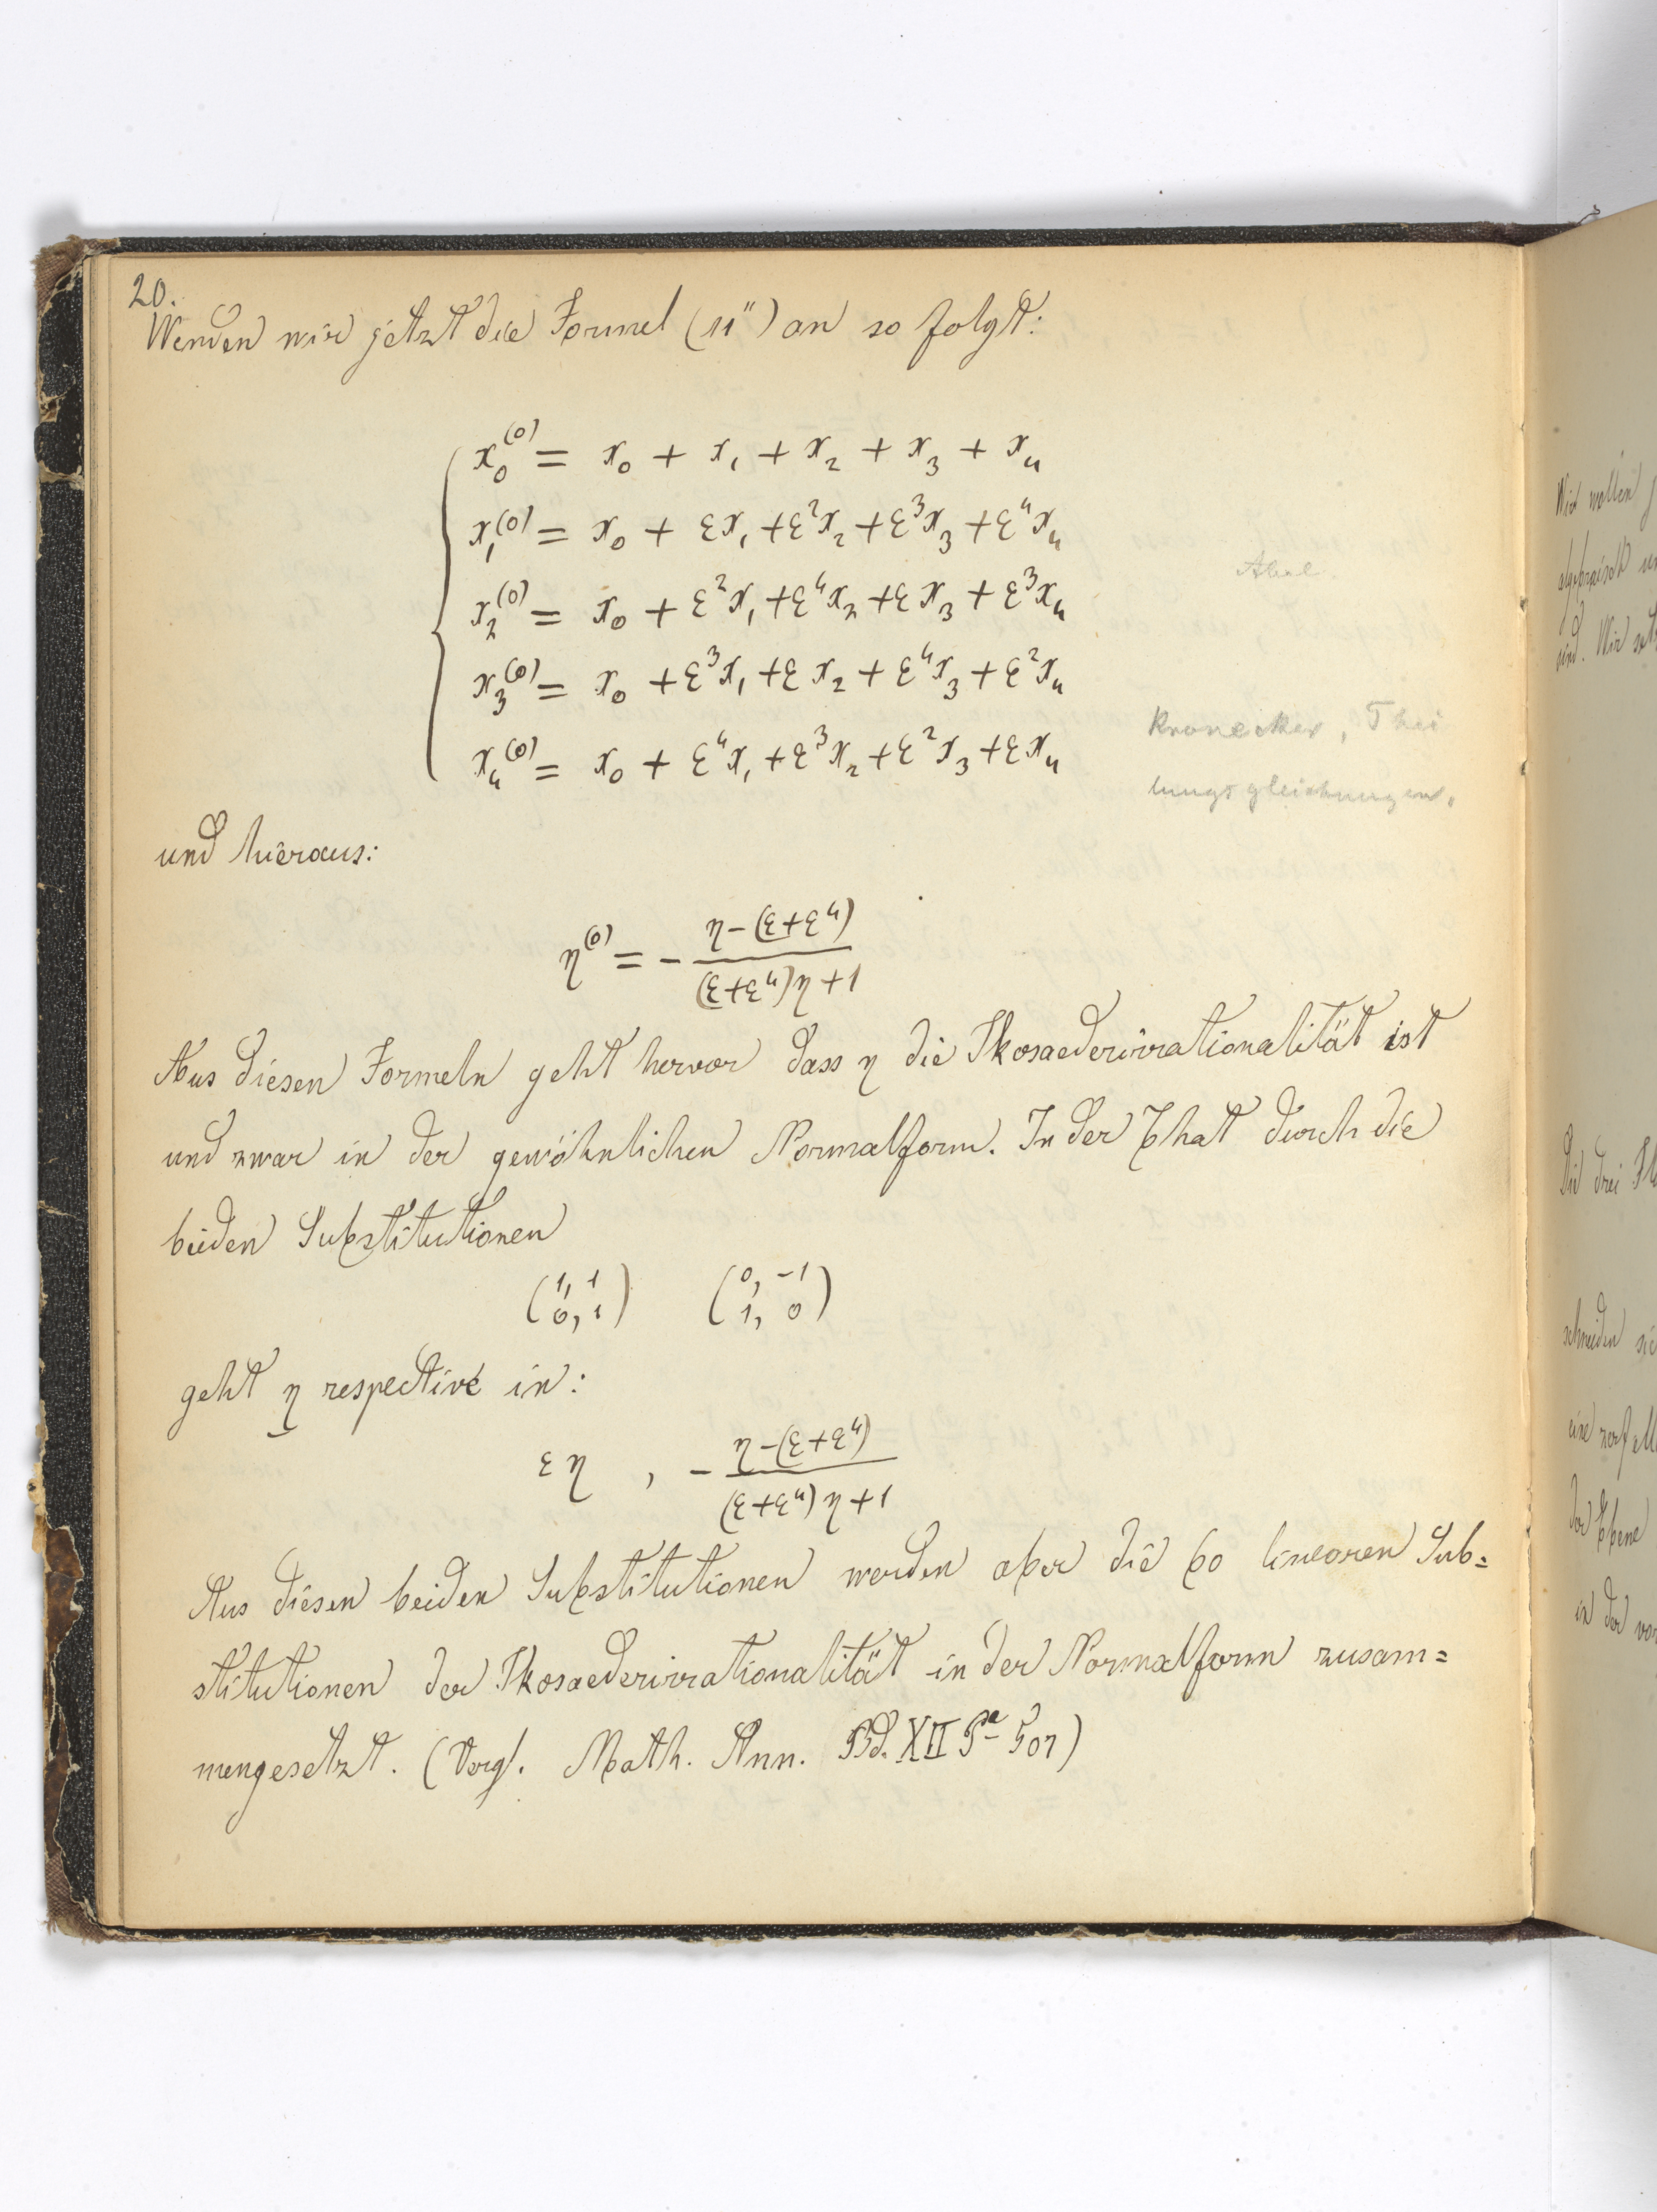 20.
Wenden wir jetzt die Formel (11") an so folgt:
x₀⁽⁰⁾ = x₀ + x₁ + x₂ + x₃ + x₄
x₁⁽⁰⁾ = x₀ + εx₁ + ε²x₂ + ε³x₃ + ε⁴x₄
Abel
x₂⁽⁰⁾ = x₀ + ε²x₁ + ε⁴x₂ + εx₃ + ε³x₄
x₃⁽⁰⁾ = x₀ + ε³x₁ + εx₂ + ε⁴x₃ + ε²x₄
x₄⁽⁰⁾ = x₀ + ε⁴x₁ + ε³x₂ + ε²x₃ + εx₄
Kronecker, Thei
lungsgleichungen.
und hieraus:
η⁽⁰⁾ = - η-(ε+ε⁴)
(ε+ε⁴)η+1
Aus diesen Formeln geht hervor dass η die Ikosaederirrationalität ist
und zwar in der gewöhnlichen Normalform. In der That durch die
beiden Substitutionen
(1, 1 (0, -1
0, 1) 1, 0)
geht η respective in:
εη , - η-(ε+ε⁴)
(ε+ε⁴)η+1
Aus diesen beiden Substitutionen werden aber die 60 linearen Sub=
stitutionen der Ikosaederirrationalität in der Normalform zusam=
mengesetzt. (Vergl. Math. Ann. Bd. XII Pᵃ 507)
Wir wollen
algebraisch
sind. Wir
Die drei
schneiden
eine
der Ebene
in der